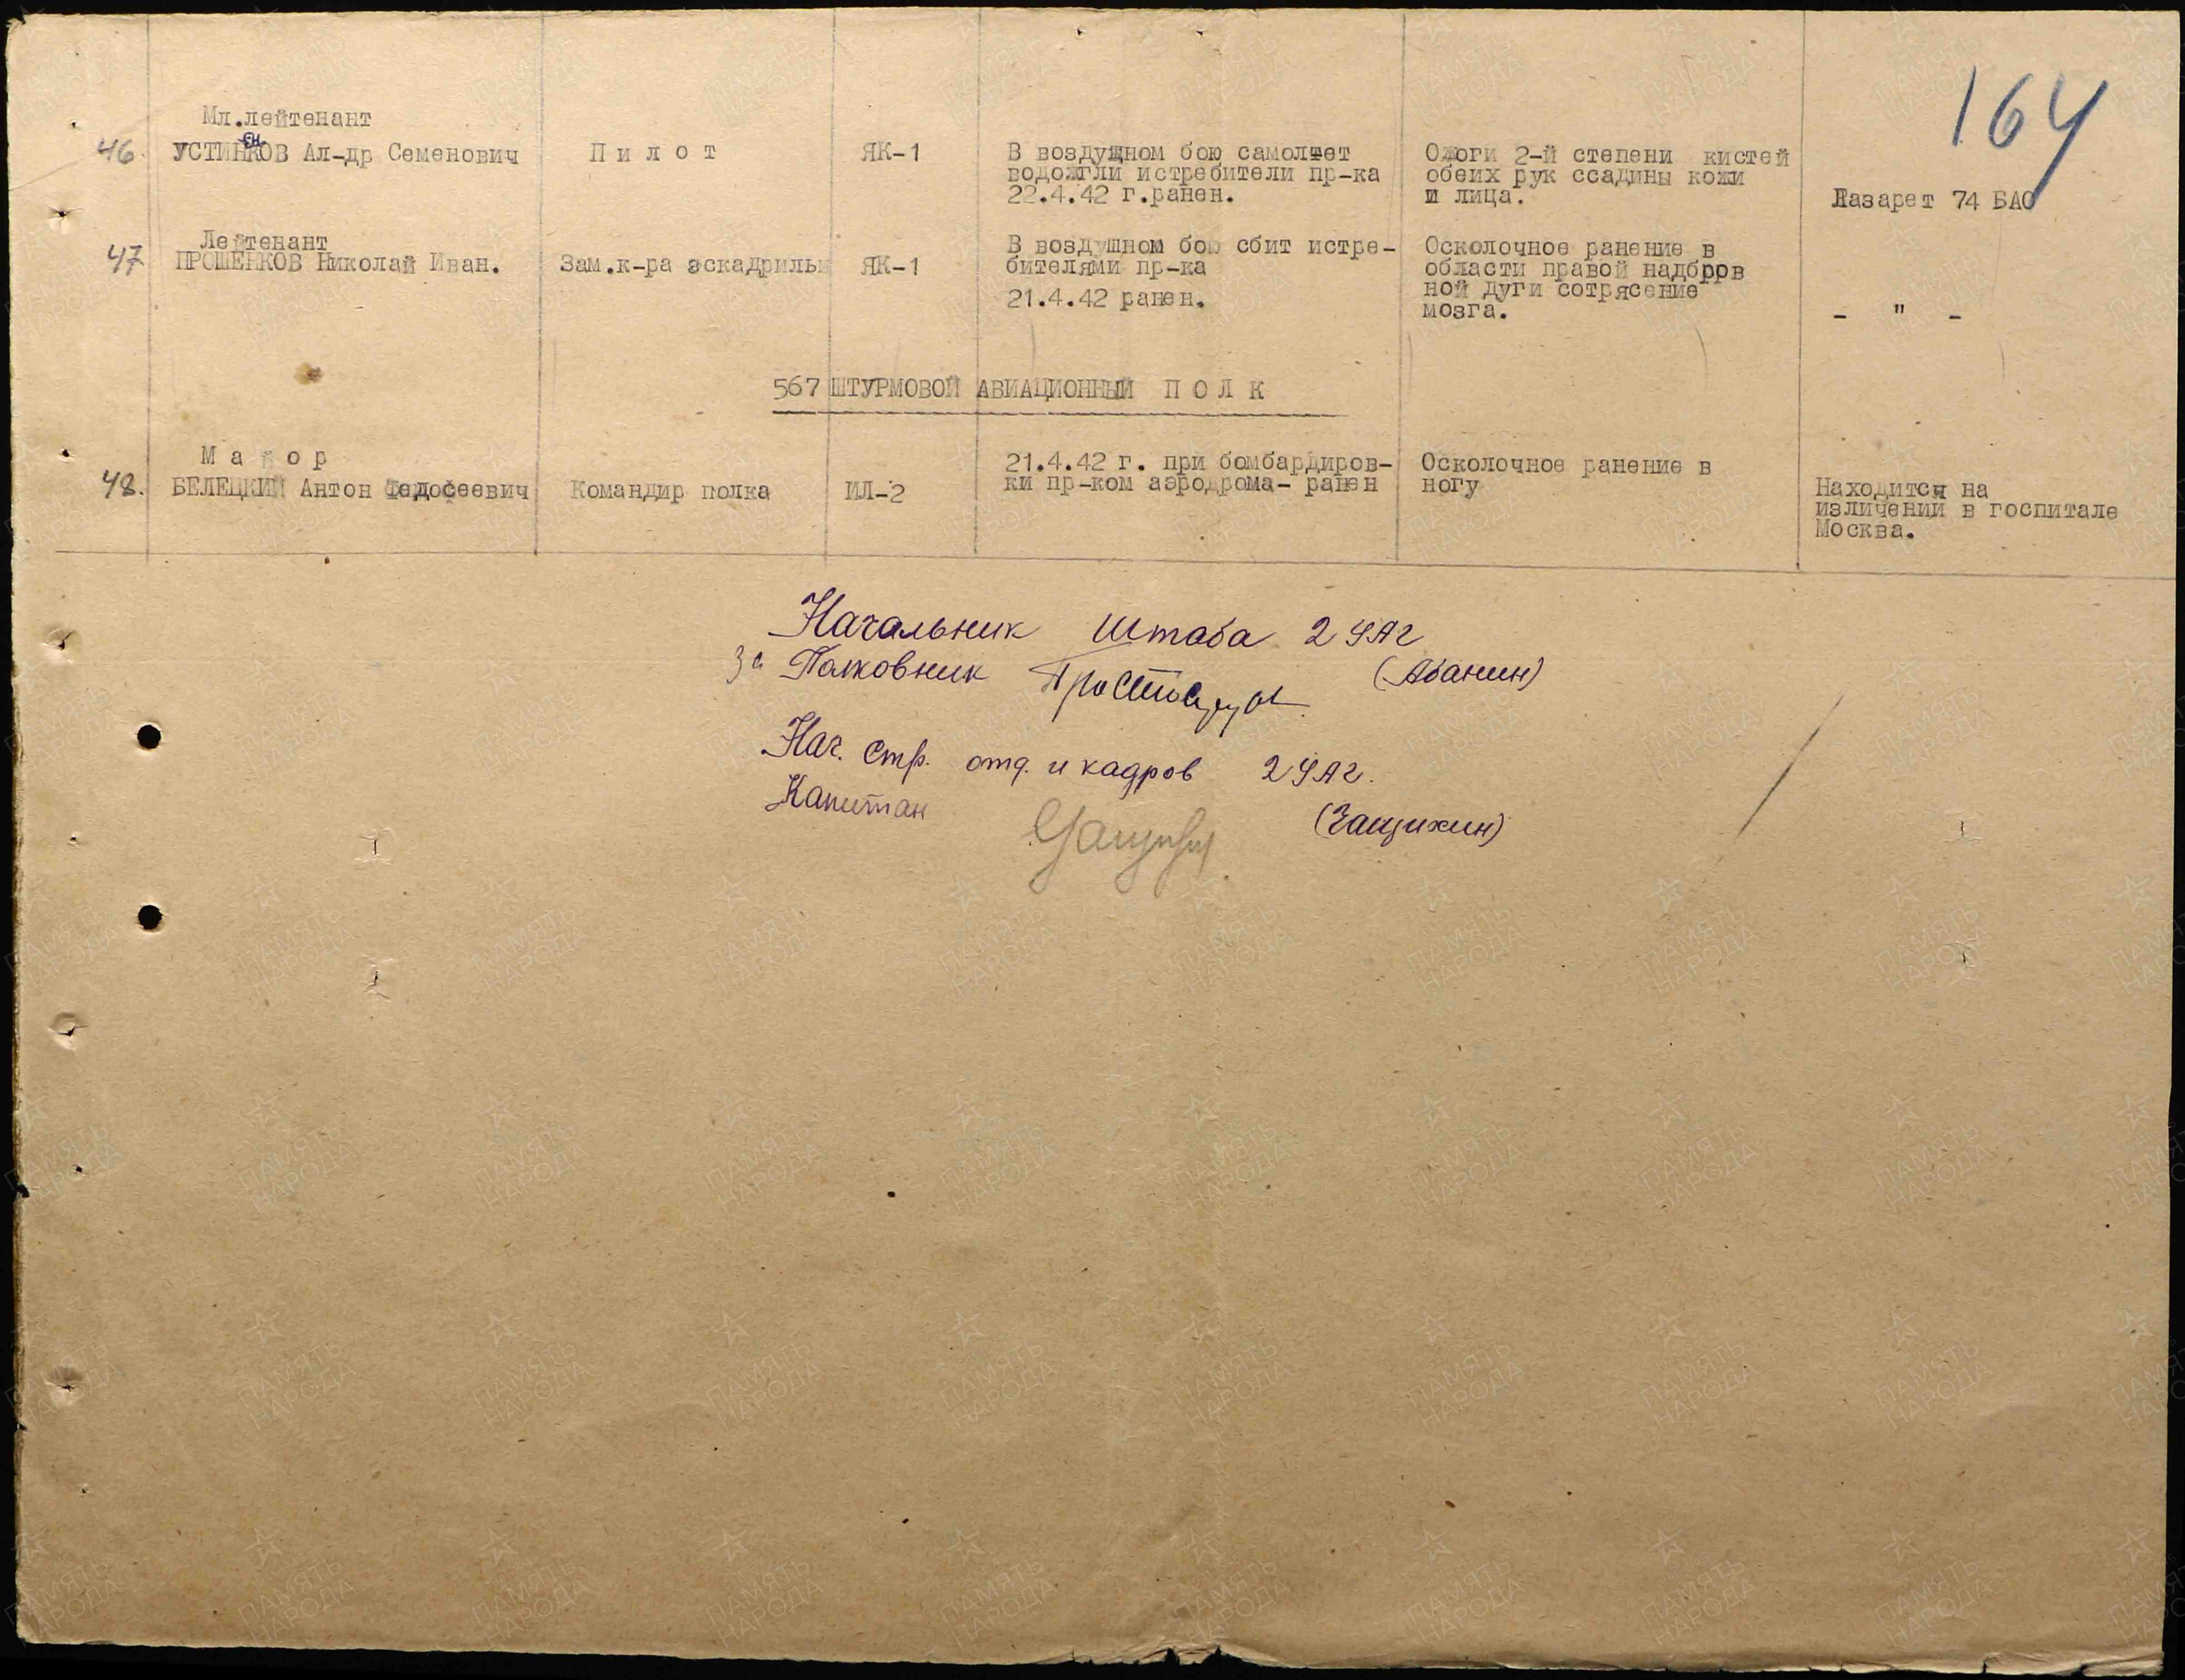 164
Мл.лейтенант
46. УСТИНКОВ Ал-др Семенович Пилот ЯК-1 В воздушном бою самолет Ожоги 2-й степени кистей
ен
водожгли истребители пр-ка обеих рук ссадины кожи
22.4.42 г.ранен. и лица. Лазарет 74 БАО
Лейтенант В воздушном бою сбит истре- Осколочное ранение в
47 ПРОШЕНКОВ Николай Иван. Зам.к-ра эскадрильи ЯК-1 бителями пр-ка области правой надбров
21.4.42 ранен. ной дуги сотрясение
мозга. - " -
567 ШТУРМОВОЙ АВИАЦИОННЫЙ ПОЛК
Майор 21.4.42 г. при бомбардиров- Осколочное ранение в
48. БЕЛЕЦКИЙ Антон Федосеевич Командир полка ИЛ-2 ки пр-ком аэродрома- ранен ногу Находится на
изличении в госпитале
Москва.
Начальник Штаба 2 УАГ
за Полковник (Абанин)
Нач. стр. отд. и кадров 2 УАГ.
Капитан (Защихин)